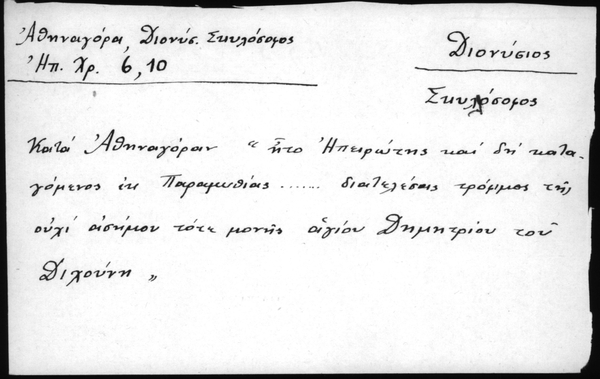 Ἀθηναγόρα, Διονύσ. Σκυλόσοφος
Ἠπ. Χρ. 6, 10
Διονύσιος
Σκυλόσοφος
Κατά Ἀθηναγόραν " ἦτο Ἠπειρώτης καί δή κατα-
γόμενος ἐκ Παραμυθίας ....... διατελέσας τρόφιμος τῆς
οὐχί ἀσήμου τότε μονῆς ἁγίου Δημητρίου τοῦ
Διχούνη "